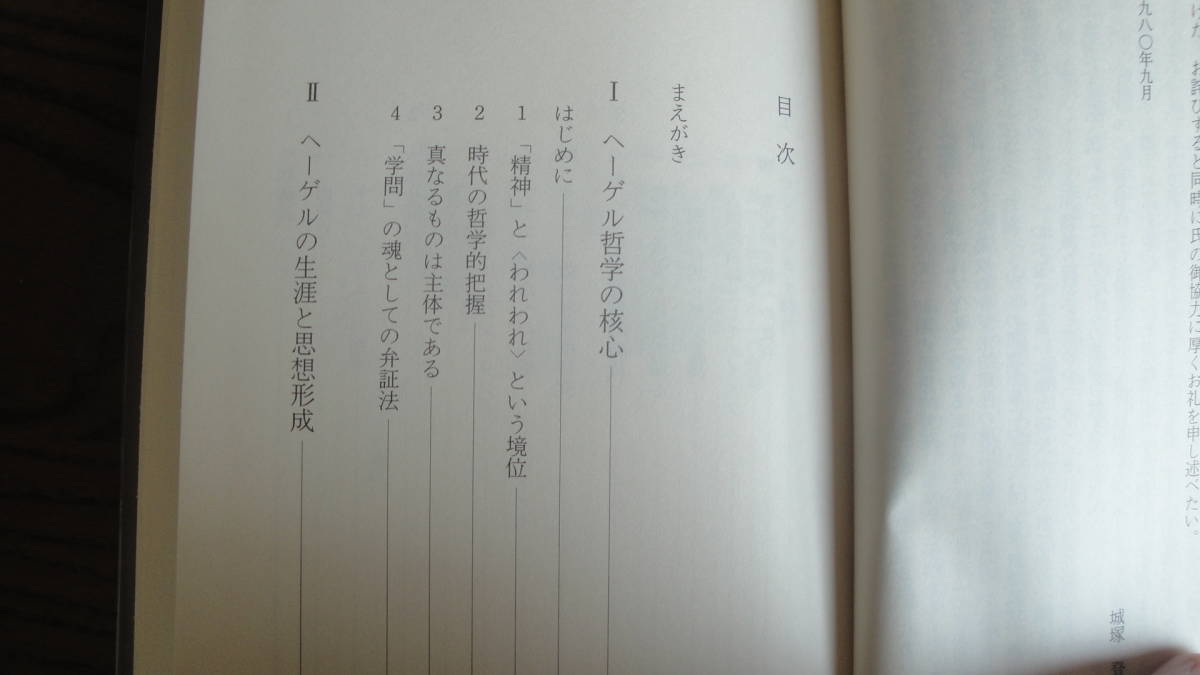 お詫びすると同時に氏の御協力に厚くお礼を申し述べたい。
九八〇年九月
城塚 登
目次
まえがき
Ⅰ ヘーゲル哲学の核心
はじめに
1 「精神」と〈われわれ〉という境位
2 時代の哲学的把握
3 真なるものは主体である
4 「学問」の魂としての弁証法
Ⅱ ヘーゲルの生涯と思想形成